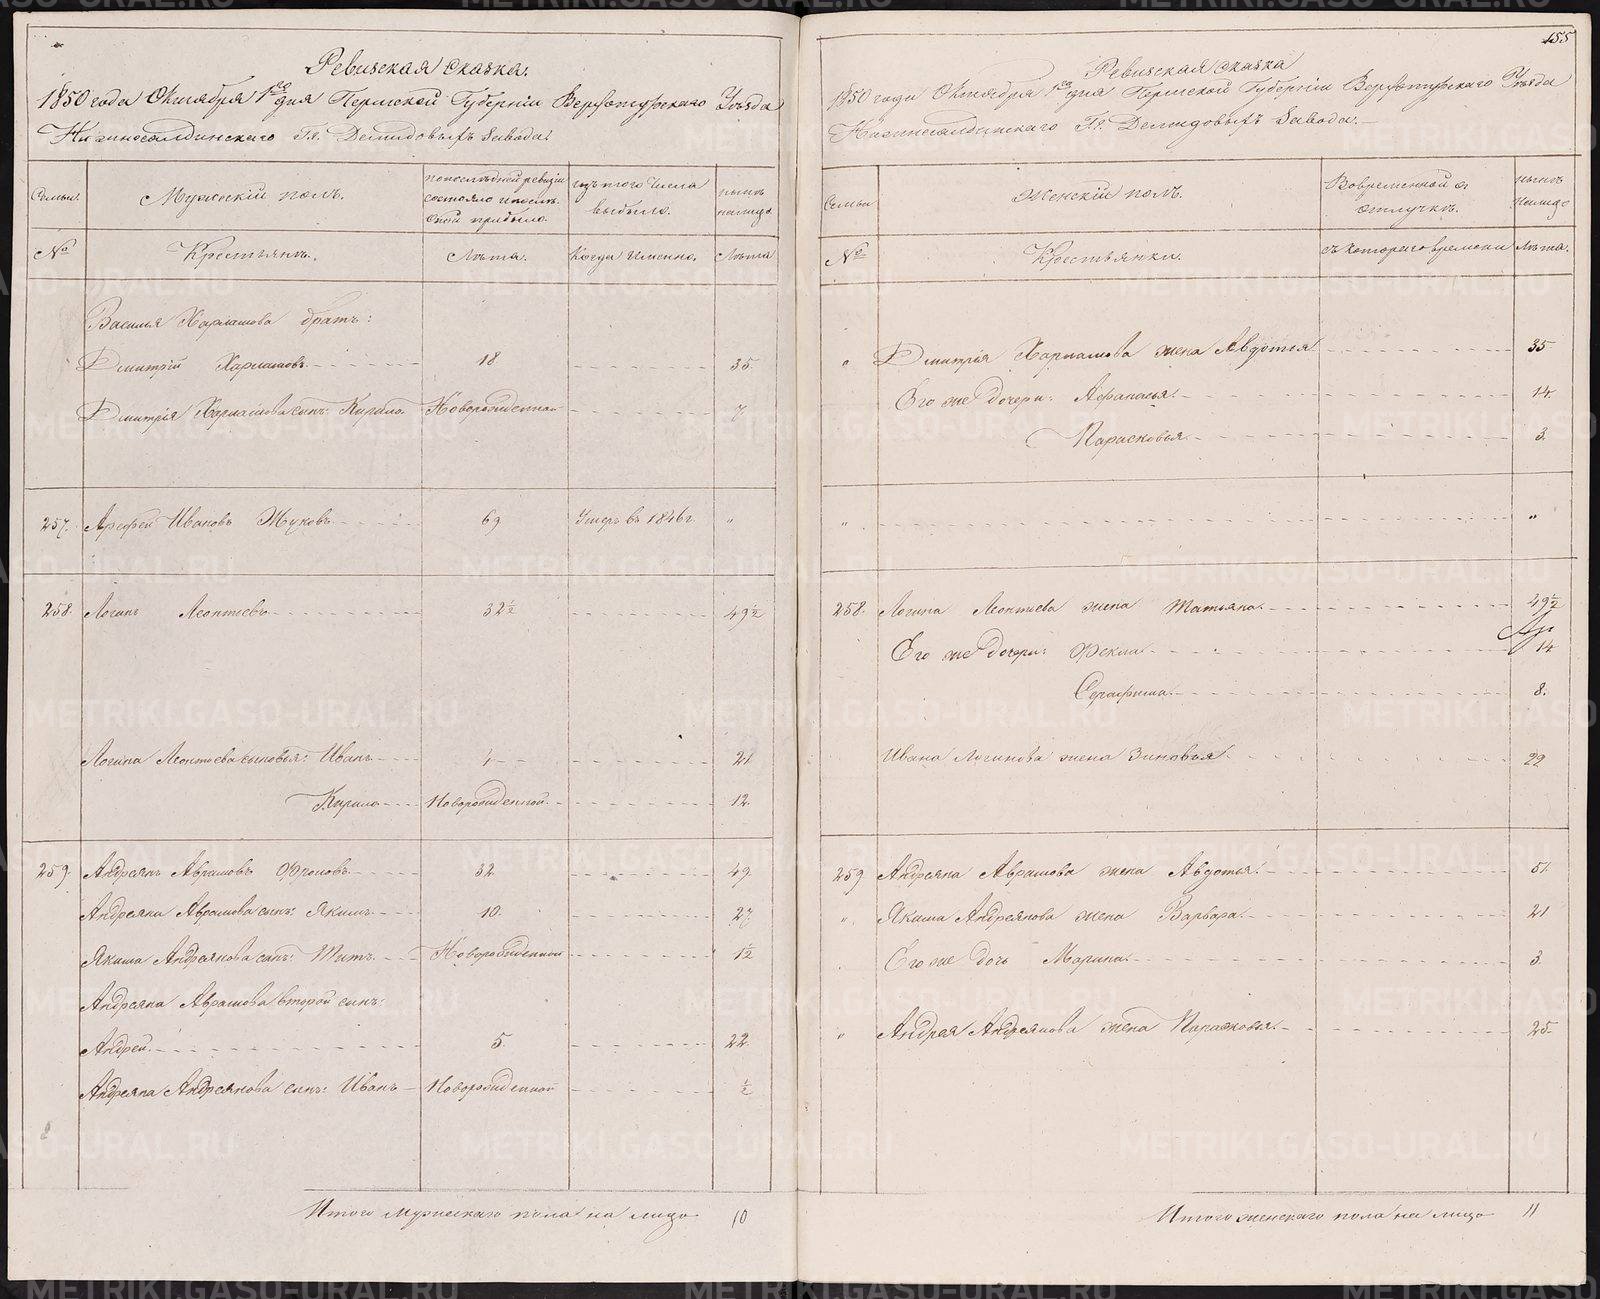 Ревизская сказка.
1850 года Октября 1го дня Пермской Губерніи Верхотурскаго Уѣзда
Нижнесалдинскаго Г.г. Демидовыхъ Завода.
Семьи.
Мужескій полъ.
попослѣдней ревизіи
состояло и послѣ
оной прибыло.
изъ того числа
выбыло.
нынѣ
налицо
№
Крестьянъ.
Лѣта.
Когда именно.
Лѣта
Василья Харлашова братъ:
Дмитрій Харлашовъ 18 35.
Дмитрія Харлашова сынъ: Кирило Новорожденной 7
257. Арефей Ивановъ Жуковъ 69 Умеръ въ 1846 г. "
258. Логинъ Леонтьевъ 32½ 49½
Логина Леонтьева сыновья: Иванъ 4 21
Кирило Новорожденной 12.
259 Андреянъ Аврамовъ Ѳроловъ 32 49
Андреяна Аврамова сынъ: Якимъ 10. 27
Якима Андреянова сынъ: Титъ Новорожденной ½
Андреяна Аврамова второй сынъ:
Андрей 5. 22.
Андреяна Андреянова сынъ: Иванъ Новорожденной ½
Итого мужескаго пола на лицо 10
155
Ревизская сказка
1850 года Октября 1го дня Пермской Губерніи Верхотурскаго Уѣзда
Нижнесалдинскаго Г.г. Демидовыхъ Завода.
Семьи
Женскій полъ.
Вовременной
отлучкѣ.
нынѣ
налицо
№
Крестьянки.
съ котораго времени
Лѣта.
" Дмитрія Харлашова жена Авдотья 35
Его же дочери: Афанасья 14.
Парасковья 3.
" "
258. Логина Леонтьева жена Татьяна 49½
Его же дочери: Ѳекла 14
Серафима 8.
Ивана Логинова жена Зиновья 29
259 Андреяна Аврамова жена Авдотья 51.
" Якима Андреянова жена Варвара 21
Его же дочь Марина 3.
" Андрея Андреянова жена Парасковья 25.
Итого женскаго пола на лицо 11
METRIKI.GASO-URAL.RU